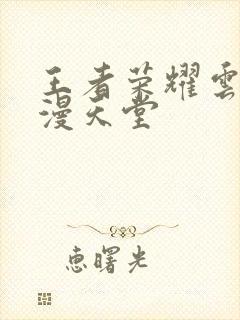 王者荣耀雲
漫天堂
惠曙光